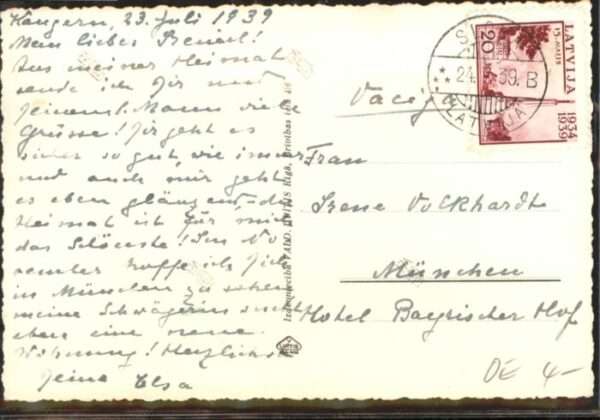 Kangern, 23. Juli 1939
Mein lieber
Aus meiner Heimat
sende ich Dir und
Deinem l. Mann viele
Grüsse! Dir geht es
sicher so gut, wie immer
und auch mir geht
es eben glänzend - die
Heimat ist für mich
das Schönste! Im No-
vember hoffe ich Dich
in München zu sehen
meine Schwägerin sucht
eben eine neue
Wohnung! Herzlichst
Deine Elsa
Vācija
Frau
Irene Volkhardt
München
Hotel Bayrischer Hof
LATVIJA
20
1934
1939
24. 39. B
LATVIJA
OE 4-